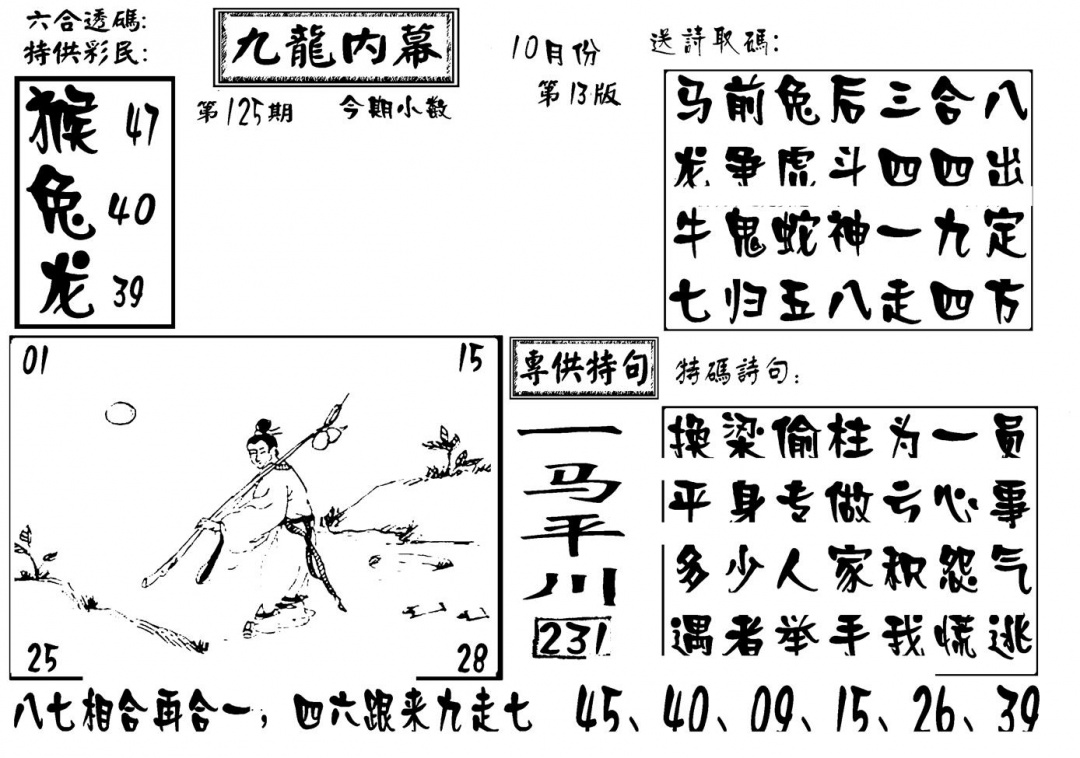 六合透碼:
特供彩民:
猴 47
兔 40
龙 39
九龍内幕
第125期 今期小数
10月份
第13版
送詩取碼:
马前兔后三合八
龙争虎斗四四出
牛鬼蛇神一九定
七归五八走四方
01 15
25 28
専供特句
一马平川
231
特碼詩句:
换梁偷柱为一员
平身专做亏心事
多少人家积怨气
遇者举手我慌逃
八七相合再合一,四六跟来九走七 45、40、09、15、26、39